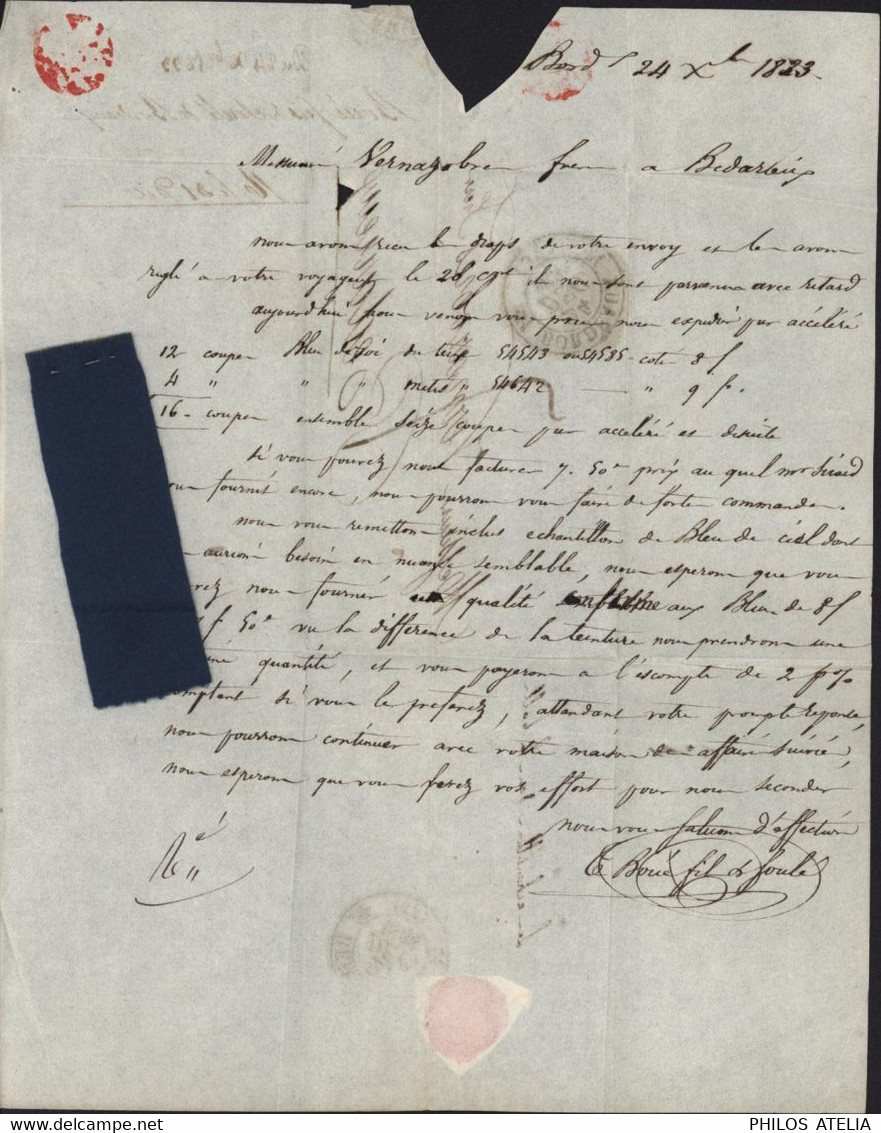 Bord 24 Xbre 1823.
Messieurs Vernazobre freres a Bedarieux
nous avons recu les draps de votre envoy et les avons
reglé a votre voyageur le 28 il nous sont parvenus avec retard
aujourdhui nous venons vous prier nous expedier par accéléré
12 coupes Bleu de roi du teint 54543 ou 54585 coté 8 f
4 " " " 54642 " 9 f.
16 - coupes ensemble seize coupes par accéléré et desuite
si vous pouvez nous facturer 7. 50c prix au quel mr Sicard
nous fournit encore, nous pourrons vous faire de forte commandes.
nous vous remettons inclus echantillon de Bleu de ciel dont
aurions besoin en nuance semblable, nous esperons que vous
nous fournir qualité aux Bleus de 8 f
f 50c vu la difference de la teinture nous prendrons une
quantité, et vous payerons a l'éscompte de 2 p%
comptant si vous le preferez, attendant votre prompte reponse,
nous pourrons continuer avec votre maison des affaires suivies,
nous esperons que vous ferez vos effort pour nous seconder
nous vous saluons d'affection
Boué fils & Soulé
PHILOS ATELIA